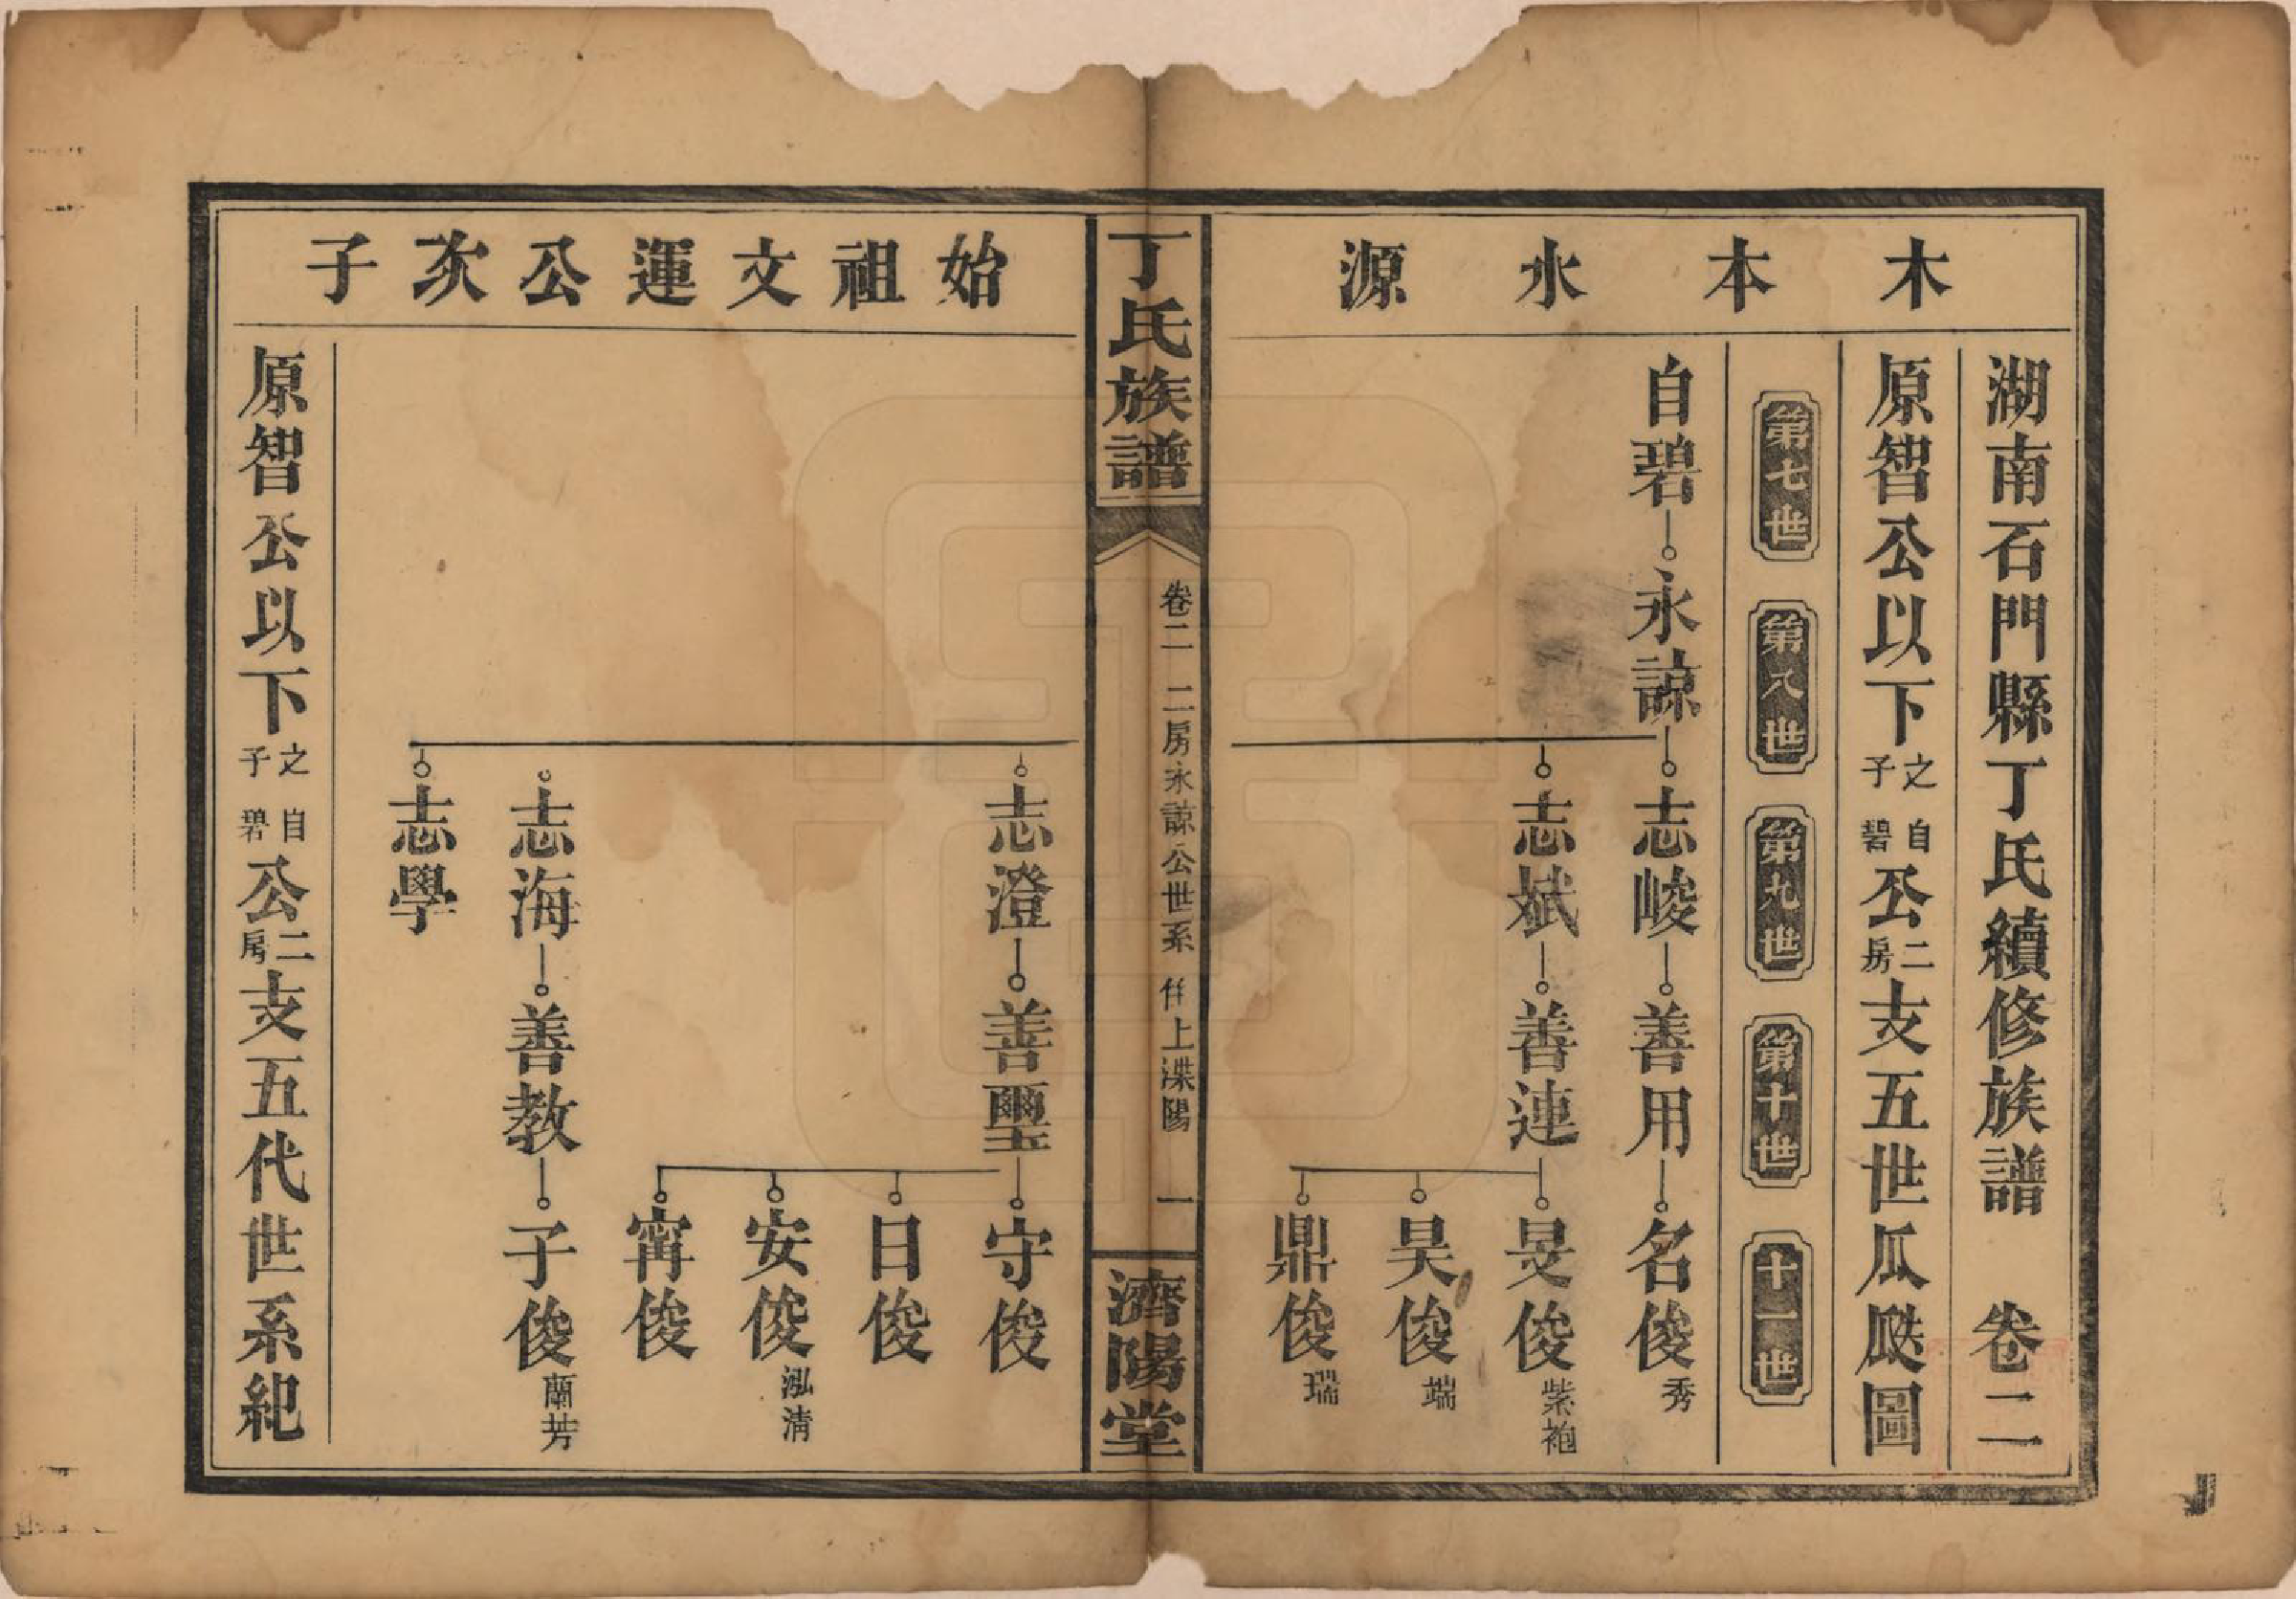 木本水源
湖南石門縣丁氏續修族譜 卷二
原智公以下之子自碧公二房支五世瓜瓞圖
第七世 第八世 第九世 第十世 十一世
自碧 永諒 志峻 善用 名俊 秀
志斌 善連 旻俊 紫袍
昊俊 端
鼎俊 瑞
丁氏族譜
卷二 二房永諒公世系 仵上渫陽 一
濟陽堂
始祖文運公次子
志澄 善璽 守俊
日俊
安俊 泓清
甯俊
志海 善教 子俊 蘭芳
志學
原智公以下之子自碧公二房支五代世系紀